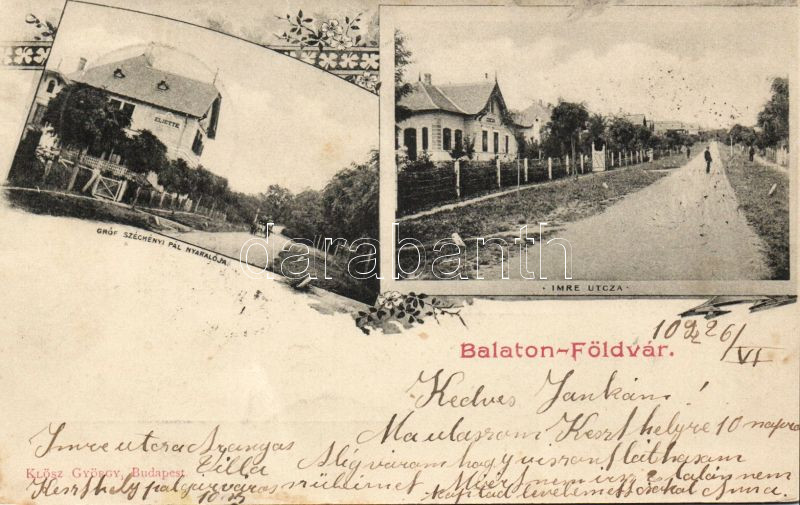 ELIETTE
GRÓF SZÉCHÉNYI PÁL NYARALÓJA.
· IMRE UTCZA ·
darabanth
Balaton-Földvár.
Kedves Jankám!
Ma utazom Keszthelyre 10 napra
Alig várom hogy viszont láthasam
szüleimet Miért nem irsz talán nem
kaptad levelemet csokol Anna.
Imre utcza Aranyos
Villa
Keszthely polgárváros
KLÖSZ GYÖRGY, Budapest.